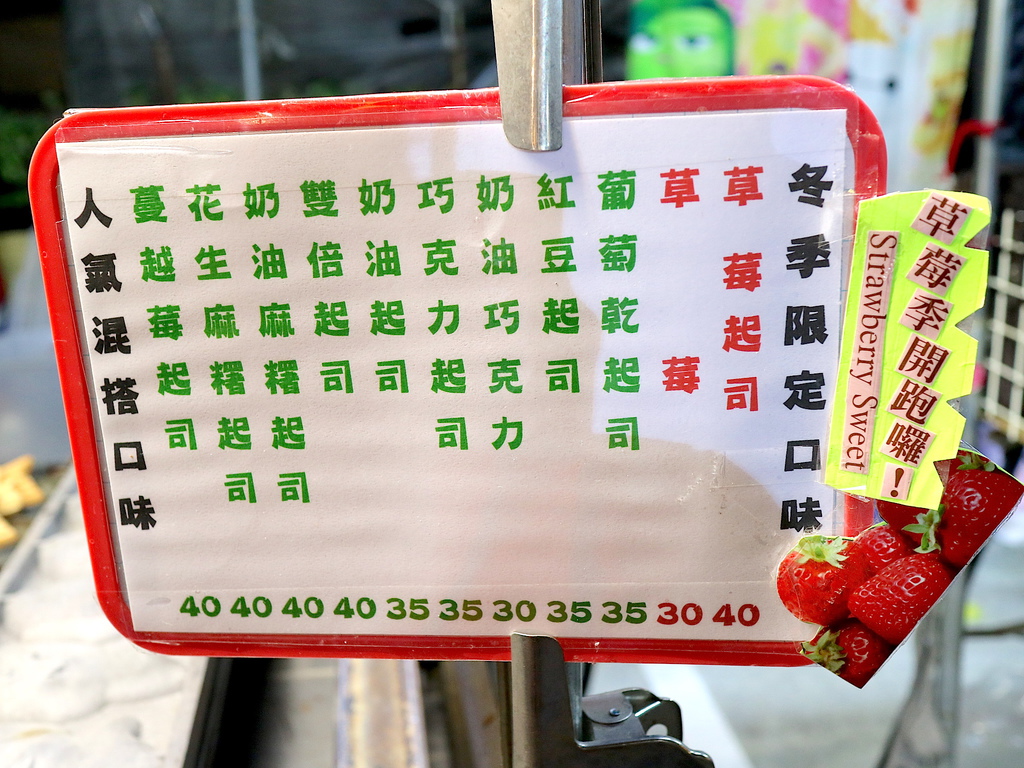 草莓季開跑囉！
Strawberry Sweet
冬季限定口味
草莓起司
草莓
葡萄乾起司
紅豆起司
奶油巧克力
巧克力起司
奶油起司
雙倍起司
奶油麻糬起司
花生麻糬起司
蔓越莓起司
人氣混搭口味
40 40 40 40 35 35 30 35 35 30 40